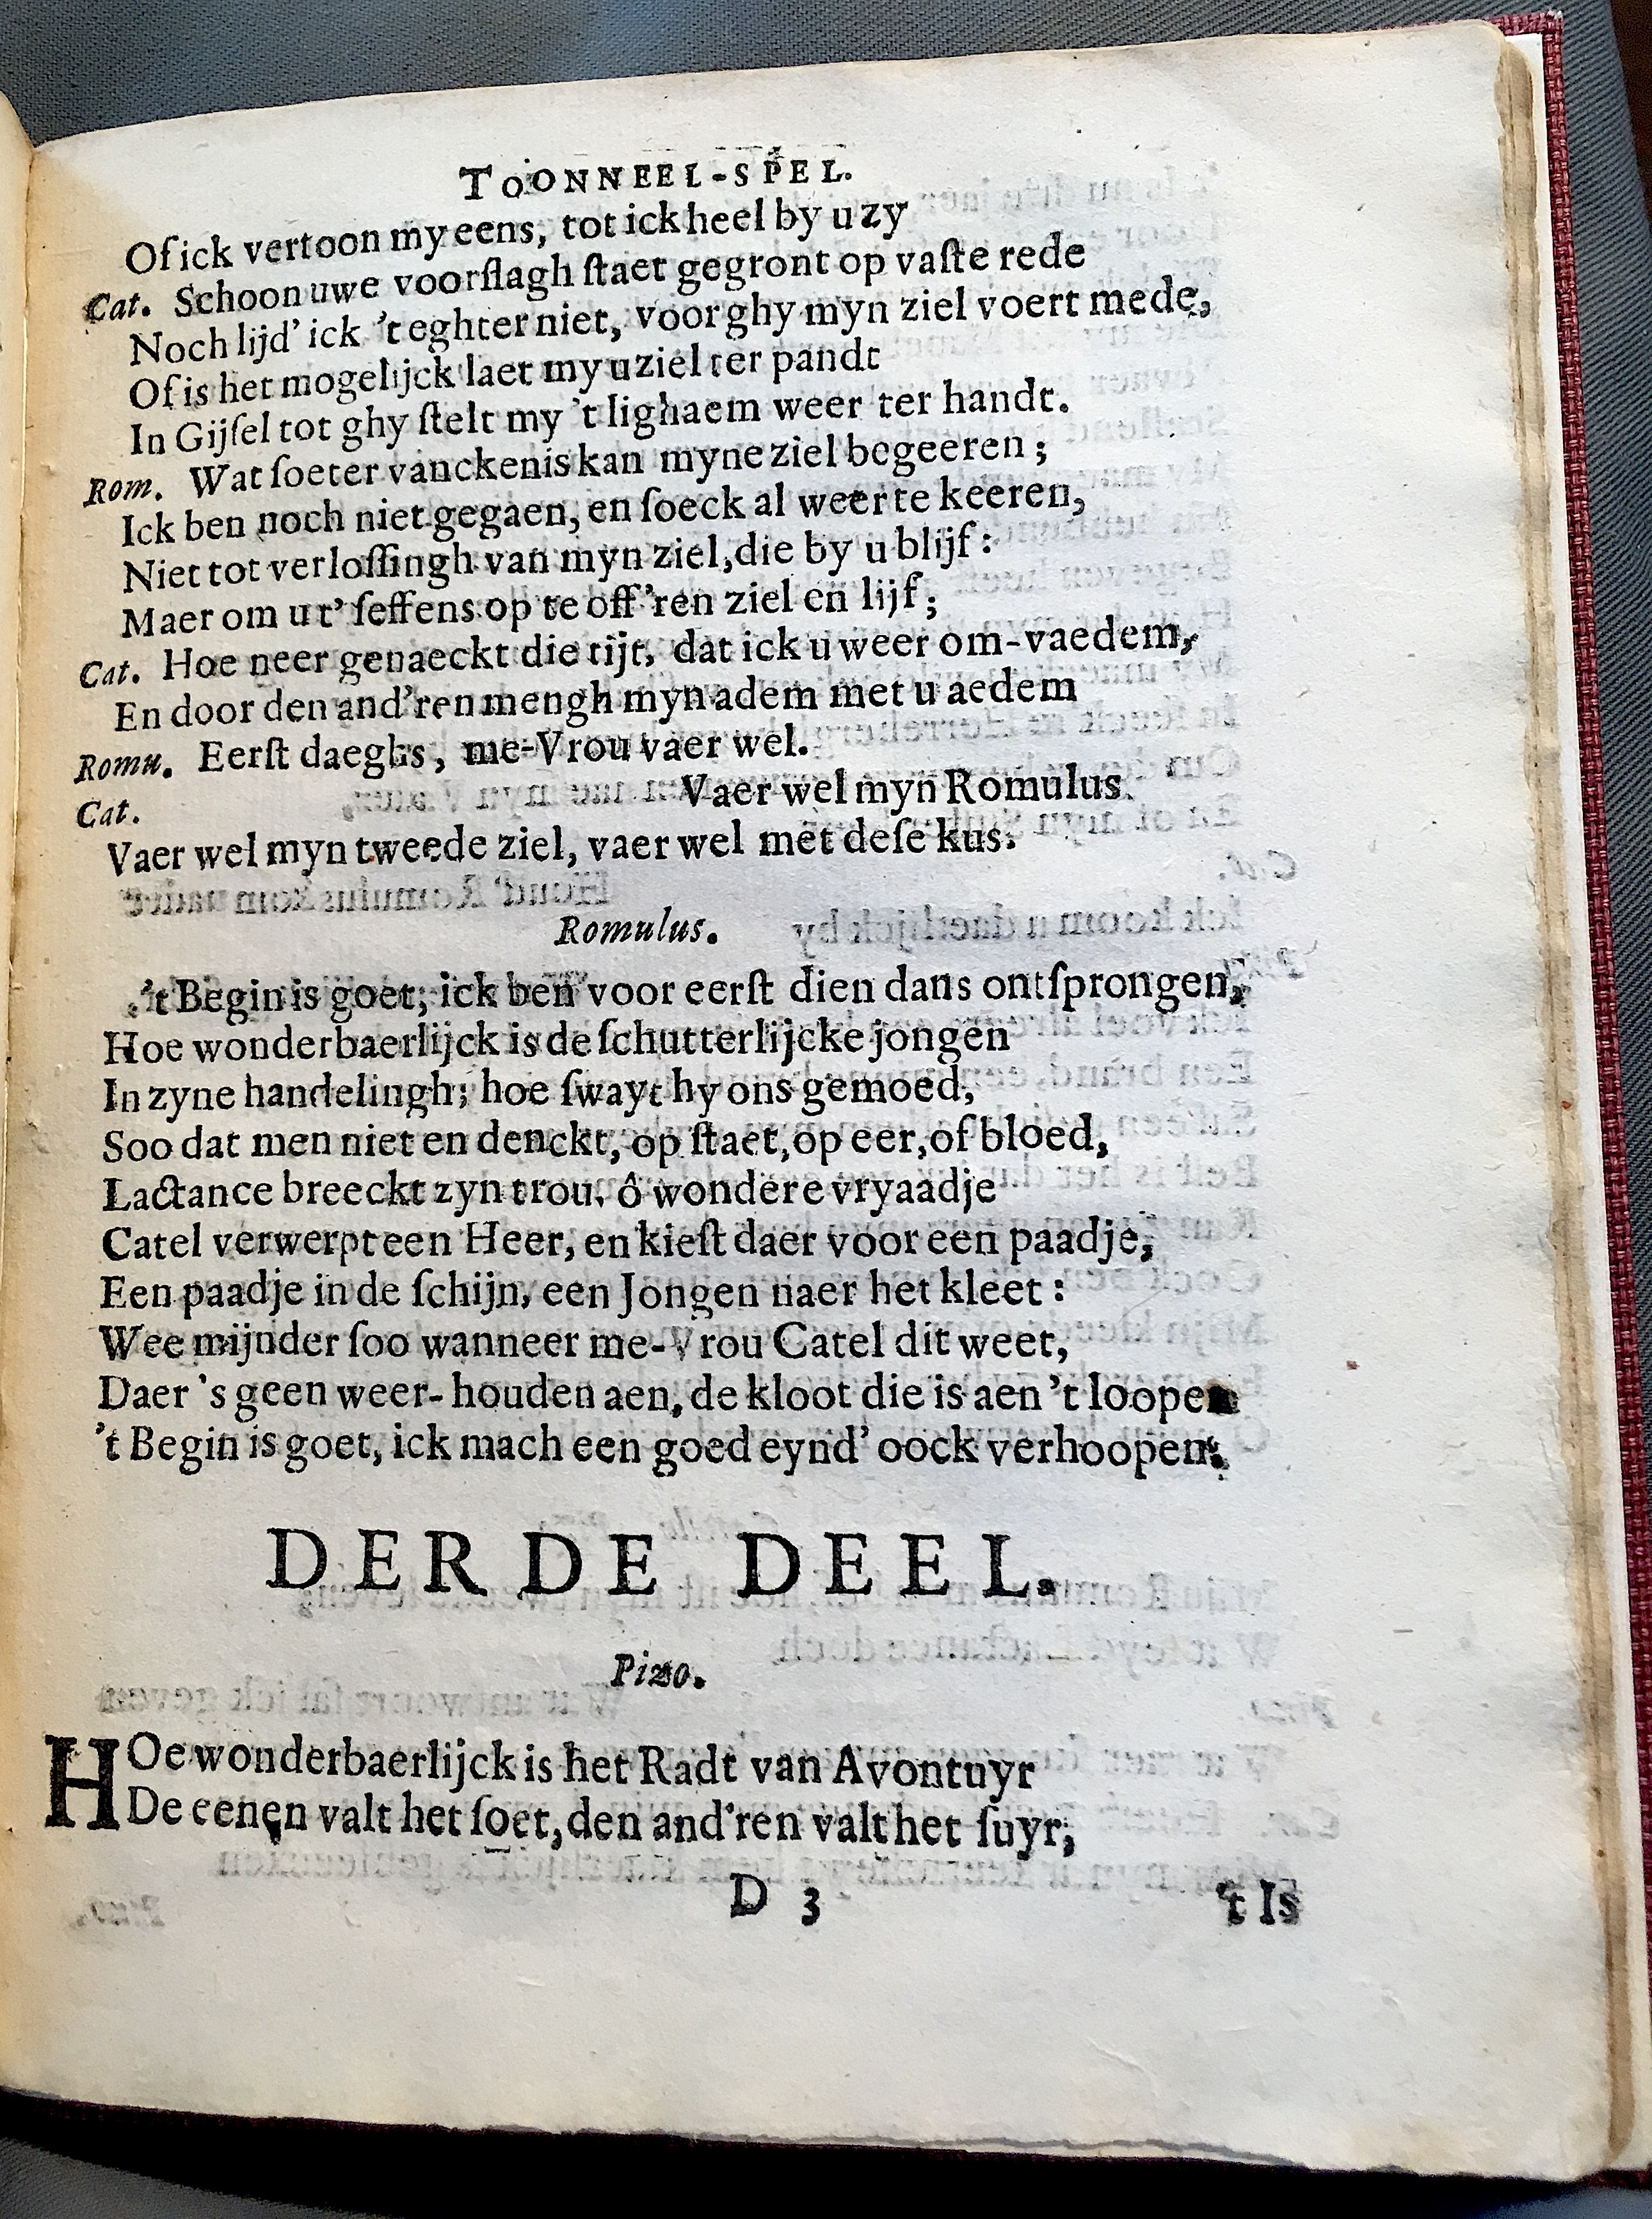 TOONNEEL-SPEL.
Of ick vertoon my eens, tot ick heel by u zy
Cat. Schoon uwe voorſlagh ſtaet gegront op vaſte rede
Noch lijd' ick 't eghter niet, voor ghy myn ziel voert mede,
Of is het mogelijck laet my u ziel ter pandt
In Gijſel tot ghy ſtelt my 't lighaem weer ter handt.
Rom. Wat ſoeter vanckenis kan myne ziel begeeren;
Ick ben noch niet gegaen, en ſoeck al weer te keeren,
Niet tot verloſſingh van myn ziel, die by u blijf:
Maer om u t' ſeffens op te off'ren ziel en lijf;
Cat. Hoe neer genaeckt die tijt, dat ick u weer om-vaedem,
En door den and'ren mengh myn adem met u aedem
Romu. Eerſt daeghs, me-Vrou vaer wel.
Cat. Vaer wel myn Romulus.
Vaer wel myn tweede ziel, vaer wel met deſe kus.
Romulus.
't Begin is goet, ick ben voor eerſt dien dans ontſprongen,
Hoe wonderbaerlijck is de ſchutterlijcke jongen
In zyne handelingh; hoe ſwayt hy ons gemoed,
Soo dat men niet en denckt, op ſtaet, op eer, of bloed,
Lactance breeckt zyn trou, ô wondere vryaadje
Catel verwerpt een Heer, en kieſt daer voor een paadje,
Een paadje in de ſchijn, een Jongen naer het kleet:
Wee mijnder ſoo wanneer me-Vrou Catel dit weet,
Daer 's geen weer-houden aen, de kloot die is aen 't loopen
't Begin is goet, ick mach een goed eynd' oock verhoopen.
DERDE DEEL.
Pizo.
HOe wonderbaerlijck is het Radt van Avontuyr
De eenen valt het ſoet, den and'ren valt het ſuyr;
D 3 't Is